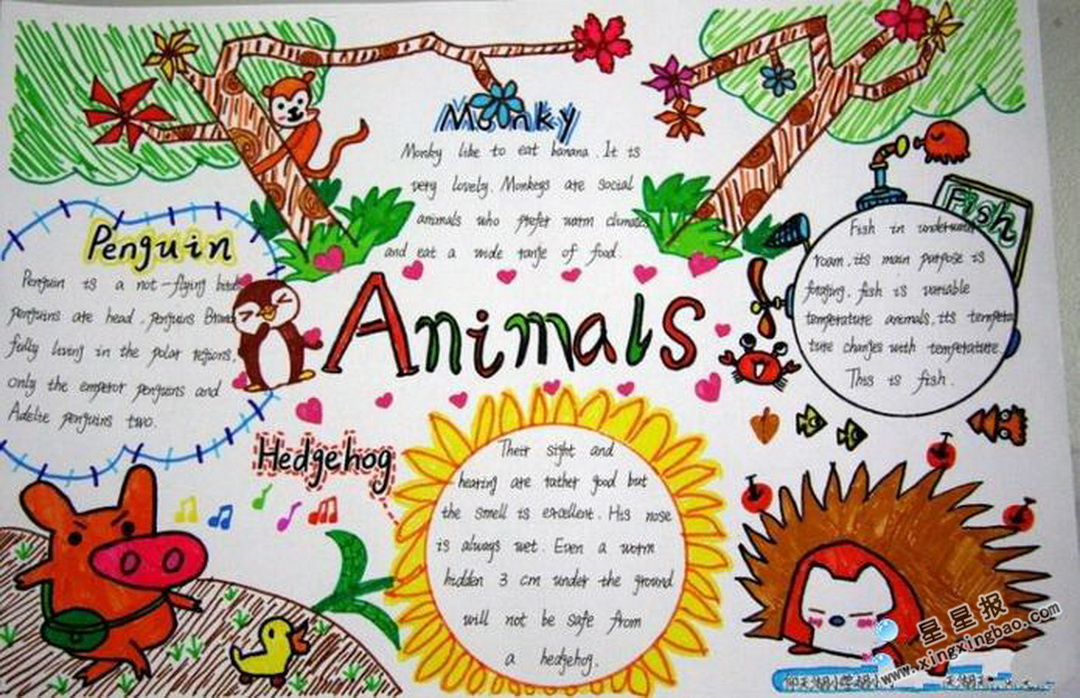 Monky
Monky like to eat banana. It is
very lovely. Monkeys are social
animals who prefer warm climates
and eat a wide range of food.
Penguin
Penguin is a not-flying bird
penguins are head. penguins Brand
fully living in the polar regions,
only the emperor penguins and
Adelie penguins two.
Animals
Fish
Fish in underwater
roam, its main purpose is
foraging. fish is variable
temperature animals, its tempera
ture changes with temperature.
This is fish.
Hedgehog
Their sight and
hearing are rather good but
the smell is excellent. His nose
is always wet. Even a worm
hidden 3 cm under the ground
will not be safe from
a hedgehog.
星星报
www.xingxingbao.com